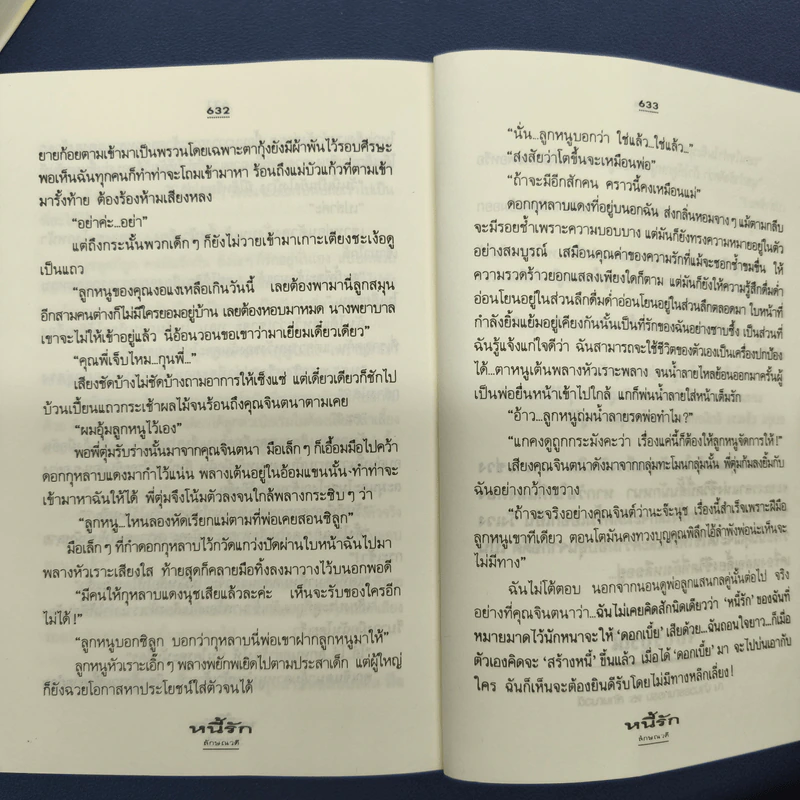 632
ยายก้อยตามเข้ามาเป็นพรวนโดยเฉพาะตากุ้งยังมีผ้าพันไว้รอบศีรษะ
พอเห็นฉันทุกคนก็ทำท่าจะโถมเข้ามาหา ร้อนถึงแม่บัวแก้วที่ตามเข้า
มารั้งท้าย ต้องร้องห้ามเสียงหลง
“อย่าค่ะ...อย่า”
แต่ถึงกระนั้นพวกเด็กๆ ก็ยังไม่วายเข้ามาเกาะเตียงชะเง้อดู
เป็นแถว
“ลูกหนูของคุณงอแงเหลือเกินวันนี้ เลยต้องพามานี่ลูกสมุน
อีกสามคนต่างก็ไม่มีใครยอมอยู่บ้าน เลยต้องหอบมาหมด นางพยาบาล
เขาจะไม่ให้เข้าอยู่แล้ว นี่อ้อนวอนขอเขาว่ามาเยี่ยมเดี๋ยวเดียว”
“คุณพี่เจ็บไหม...กุนพี่...”
เสียงชัดบ้างไม่ชัดบ้างถามอาการให้เซ็งแซ่ แต่เดี๋ยวเดียวก็ชักไป
ป้วนเปี้ยนแถวกระเช้าผลไม้จนร้อนถึงคุณจินตนาตามเคย
“ผมอุ้มลูกหนูไว้เอง”
พอพี่ตุ่มรับร่างนั้นมาจากคุณจินตนา มือเล็กๆ ก็เอื้อมมือไปคว้า
ดอกกุหลาบแดงมากำไว้แน่น พลางเต้นอยู่ในอ้อมแขนนั้น ทำท่าจะ
เข้ามาหาฉันให้ได้ พี่ตุ่มจึงโน้มตัวลงจนใกล้พลางกระซิบๆ ว่า
“ลูกหนู...ไหนลองหัดเรียกแม่ตามที่พ่อเคยสอนซิลูก”
มือเล็กๆ ที่กำดอกกุหลาบไว้กวัดแกว่งปัดผ่านใบหน้าฉันไปมา
พลางหัวเราะเสียงใส ท้ายสุดก็คลายมือทิ้งลงมาวางไว้บนอกพอดี
“มีคนให้กุหลาบแดงนุชเสียแล้วละค่ะ เห็นจะรับของใครอีก
ไม่ได้!”
“ลูกหนูบอกซิลูก บอกว่ากุหลาบนี่พ่อเขาฝากลูกหนูมาให้”
ลูกหนูหัวเราะเอิ๊กๆ พลางพยักพเยิดไปตามประสาเด็ก แต่ผู้ใหญ่
ก็ยังฉวยโอกาสหาประโยชน์ใส่ตัวจนได้
หนี้รัก
ลักษณวดี
633
“นั่น...ลูกหนูบอกว่า ใช่แล้ว...ใช่แล้ว...”
“สงสัยว่าโตขึ้นจะเหมือนพ่อ”
“ถ้าจะมีอีกสักคน คราวนี้คงเหมือนแม่”
ดอกกุหลาบแดงที่อยู่บนอกฉัน ส่งกลิ่นหอมจางๆ แม้ตามกลีบ
จะมีรอยช้ำเพราะความบอบบาง แต่มันก็ยังทรงความหมายอยู่ในตัว
อย่างสมบูรณ์ เสมือนคุณค่าของความรักที่แม้จะชอกช้ำขมขื่น ให้
ความรวดร้าวยอกแสลงเพียงใดก็ตาม แต่มันก็ยังให้ความรู้สึกดื่มด่ำ
อ่อนโยนอยู่ในส่วนลึกดื่มด่ำอ่อนโยนอยู่ในส่วนลึกตลอดมา ใบหน้าที่
กำลังยิ้มแย้มอยู่เคียงกันนั้นเป็นที่รักของฉันอย่างซาบซึ้ง เป็นส่วนที่
ฉันรู้แจ้งแก่ใจดีว่า ฉันสามารถจะใช้ชีวิตของตัวเองเป็นเครื่องปกป้อง
ได้...ตาหนูเต้นพลางหัวเราะพลาง จนน้ำลายไหลย้อยออกมาครั้นผู้
เป็นพ่อยื่นหน้าเข้าไปใกล้ แกก็พ่นน้ำลายใส่หน้าเต็มรัก
“อ้าว...ลูกหนูถ่มน้ำลายรดพ่อทำไม?”
“แกคงดูถูกกระมังคะว่า เรื่องแค่นี้ก็ต้องให้ลูกหนูจัดการให้!”
เสียงคุณจินตนาดังมาจากกลุ่มทะโมนกลุ่มนั้น พี่ตุ่มก้มลงยิ้มกับ
ฉันอย่างกว้างขวาง
“ถ้าจะจริงอย่างคุณจินต์ว่านะจ๊ะนุช เรื่องนี้สำเร็จเพราะฝีมือ
ลูกหนูเขาทีเดียว ตอนโตมันคงทวงบุญคุณพิลึกไอ้ลำพังพ่อน่ะเห็นจะ
ไม่มีทาง”
ฉันไม่โต้ตอบ นอกจากนอนดูพ่อลูกแสนกลคู่นั้นต่อไป จริง
อย่างที่คุณจินตนาว่า...ฉันไม่เคยคิดสักนิดเดียวว่า ‘หนี้รัก’ ของฉันที่
หมายมาดไว้นักหนาจะให้ ‘ดอกเบี้ย’ เสียด้วย...ฉันถอนใจยาว...ก็เมื่อ
ตัวเองคิดจะ ‘สร้างหนี้’ ขึ้นแล้ว เมื่อได้ ‘ดอกเบี้ย’ มา จะไปบ่นเอากับ
ใคร ฉันก็เห็นจะต้องยินดีรับโดยไม่มีทางหลีกเลี่ยง!
หนี้รัก
ลักษณวดี